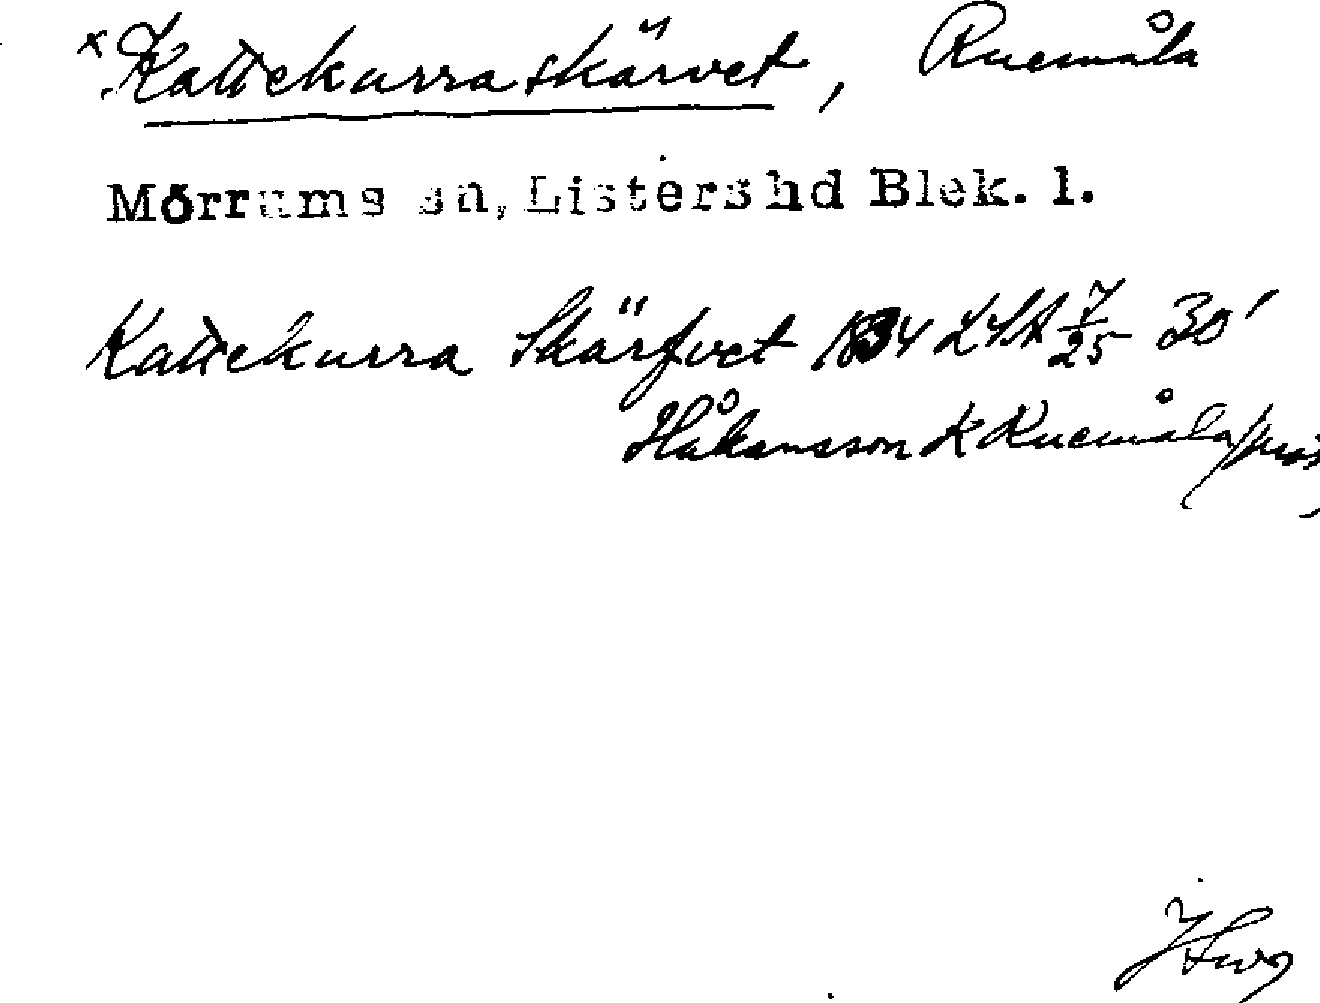 × Kattekurraskärvet, Ruemåla
Mörrums sn, Listers hd Blek. l.
Kattekurra Skärfvet 1834 LSA 7/25 30'
Håkansson K Ruemåla